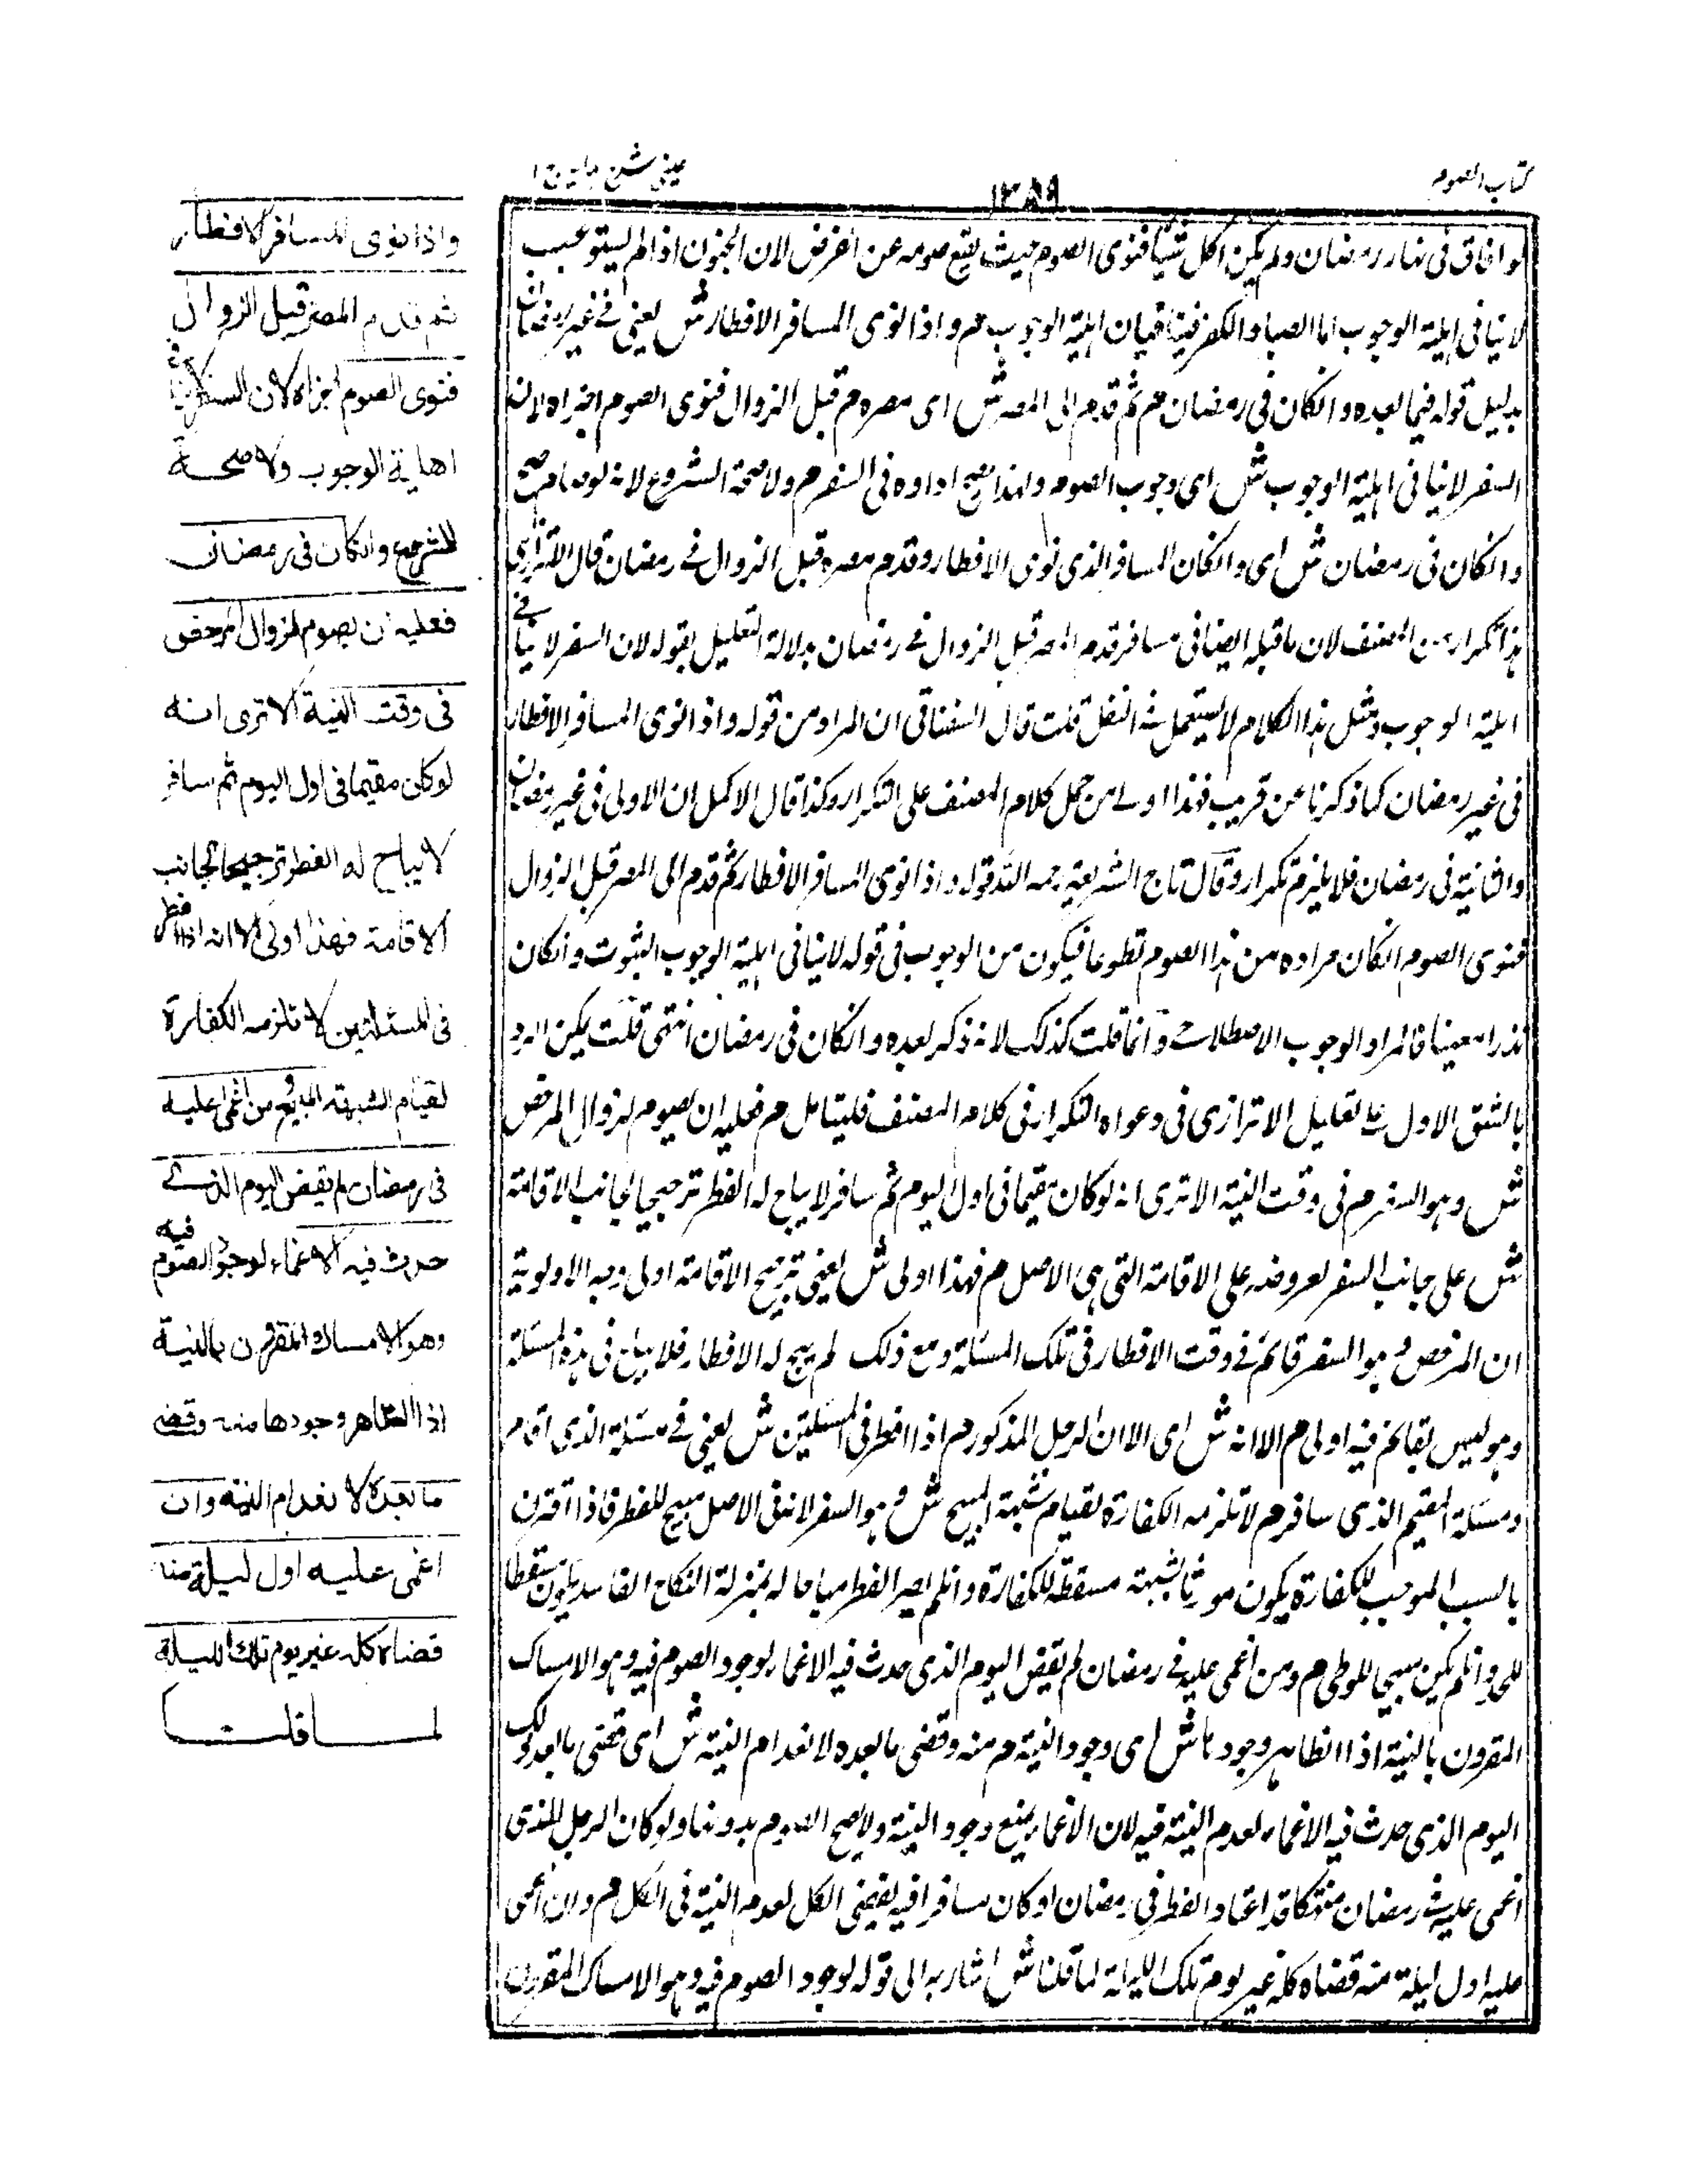 كتاب الصوم
١٣٥٩
عيني شرح هداية ج ١
لو افاق فى نهار رمضان ولم يكن اكل شيئا فنوى الصوم حيث يقع صومه عن الفرض لان الجنون اذا لم يستوعب
لا ينافى اهلية الوجوب اما الصبا والكفر فينافيان اهلية الوجوب م واذا نوى المسافر الافطار ش يعنى فى غير رمضان
بدليل قوله فيما بعده وانكان فى رمضان م ثم قدم الى المصر ش اى مصره م قبل الزوال فنوى الصوم اجزاه لان
السفر لا ينافى اهلية الوجوب ش اى وجوب الصوم ولهذا يصح اداوه فى السفر م ولا صحة الشروع لانه لو صام صح
وانكان فى رمضان ش اى وانكان المسافر الذى نوى الافطار وقدم مصره قبل الزوال فى رمضان قال الاترازى
هذا تكرار من المصنف لان ما قبله ايضا فى مسافر قدم المصر قبل الزوال فى رمضان بدلالة التعليل بقوله لان السفر لا ينافى
اهلية الوجوب ومثل هذا الكلام لا يستعمل فى النفل قلت قال السغناقى ان المراد من قوله واذا نوى المسافر الافطار
فى غير رمضان كما ذكرنا عن قريب فهذا اولى من حمل كلام المصنف على التكرار وكذا قال الاكمل ان الاولى فى غير رمضان
والثانية فى رمضان فلا يلزم تكرار وقال تاج الشريعة رحمه الله قوله واذا نوى المسافر الافطار ثم قدم الى المصر قبل الزوال
فنوى الصوم انكان مراده من هذا الصوم تطوعا فيكون من الوجوب فى قوله لا ينافى اهلية الوجوب الثبوت وانكان
نذرا معينا فالمراد الوجوب الاصطلاحى وانما قلت كذلك لانه ذكر بعده وانكان فى رمضان انتهى قلت يمكن الرد
بالشق الاول على تعليل الاترازى فى دعواه التكرار فى كلام المصنف فليتامل م فعليه ان يصوم لزوال المرخص
ش وهو السفر م فى وقت النية الا ترى انه لو كان مقيما فى اول اليوم ثم سافر لا يباح له الفطر ترجيحا لجانب الاقامة
ش على جانب السفر لعروضه على الاقامة التى هى الاصل م فهذا اولى ش يعنى ترجيح الاقامة اولى وجه الاولوية
ان المرخص وهو السفر قائم فى وقت الافطار فى تلك المسئلة ومع ذلك لم يبح له الافطار فلا يباح فى هذه المسئلة
وهو ليس بقائم فيه اولى م الا انه ش اى الا ان الرجل المذكور م اذا افطر فى المسئلتين ش يعنى فى مسئلة الذى اقام
ومسئلة المقيم الذى سافر م لا تلزمه الكفارة لقيام شبهة المبيح ش وهو السفر لانه فى الاصل مبيح للفطر فاذا اقترن
بالسبب الموجب للكفارة يكون مورثا شبهة مسقطة للكفارة وانلم يصر الفطر مباحا له بمنزلة النكاح الفاسد يكون مسقطا
للحد وانلم يكن مبيحا للوطى م ومن اغمى عليه فى رمضان لم يقض اليوم الذى حدث فيه الاغماء لوجود الصوم فيه وهو الامساك
المقرون بالنية اذا الظاهر وجودها ش اى وجود النية م منه وقضى ما بعده لانعدام النية ش اى قضى ما بعد ذلك
اليوم الذى حدث فيه الاغماء لعدم النية فيه لان الاغماء يمنع وجود النية ولا يصح الصوم بدونها ولو كان الرجل الذى
اغمى عليه فى رمضان متهتكا قد اعتاد الفطر فى رمضان او كان مسافرا فيه يقضى الكل لعدم النية فى الكل م وان اغمى
عليه اول ليلة منه قضاه كله غير يوم تلك الليلة لما قلنا ش اشار به الى قوله لوجود الصوم فيه وهو الامساك المقرون
واذا نوى المسافر الافطار
ثم قدم المصر قبل الزوال
فنوى الصوم اجزاه لان السفر لا ينافى
اهلية الوجوب ولا صحة
الشروع وانكان فى رمضان
فعليه ان يصوم لزوال المرخص
فى وقت النية الا ترى انه
لو كان مقيما فى اول اليوم ثم سافر
لا يباح له الفطر ترجيحا لجانب
الاقامة فهذا اولى الا انه اذا افطر
فى المسئلتين لا تلزمه الكفارة
لقيام الشبهة المبيح ومن اغمى عليه
فى رمضان لم يقض اليوم الذى
حدث فيه الاغماء لوجود الصوم فيه
وهو الامساك المقرون بالنية
اذا الظاهر وجودها منه وقضى
ما بعده لانعدام النية وان
اغمى عليه اول ليلة منه
قضاه كله غير يوم تلك الليلة
لما قلنا